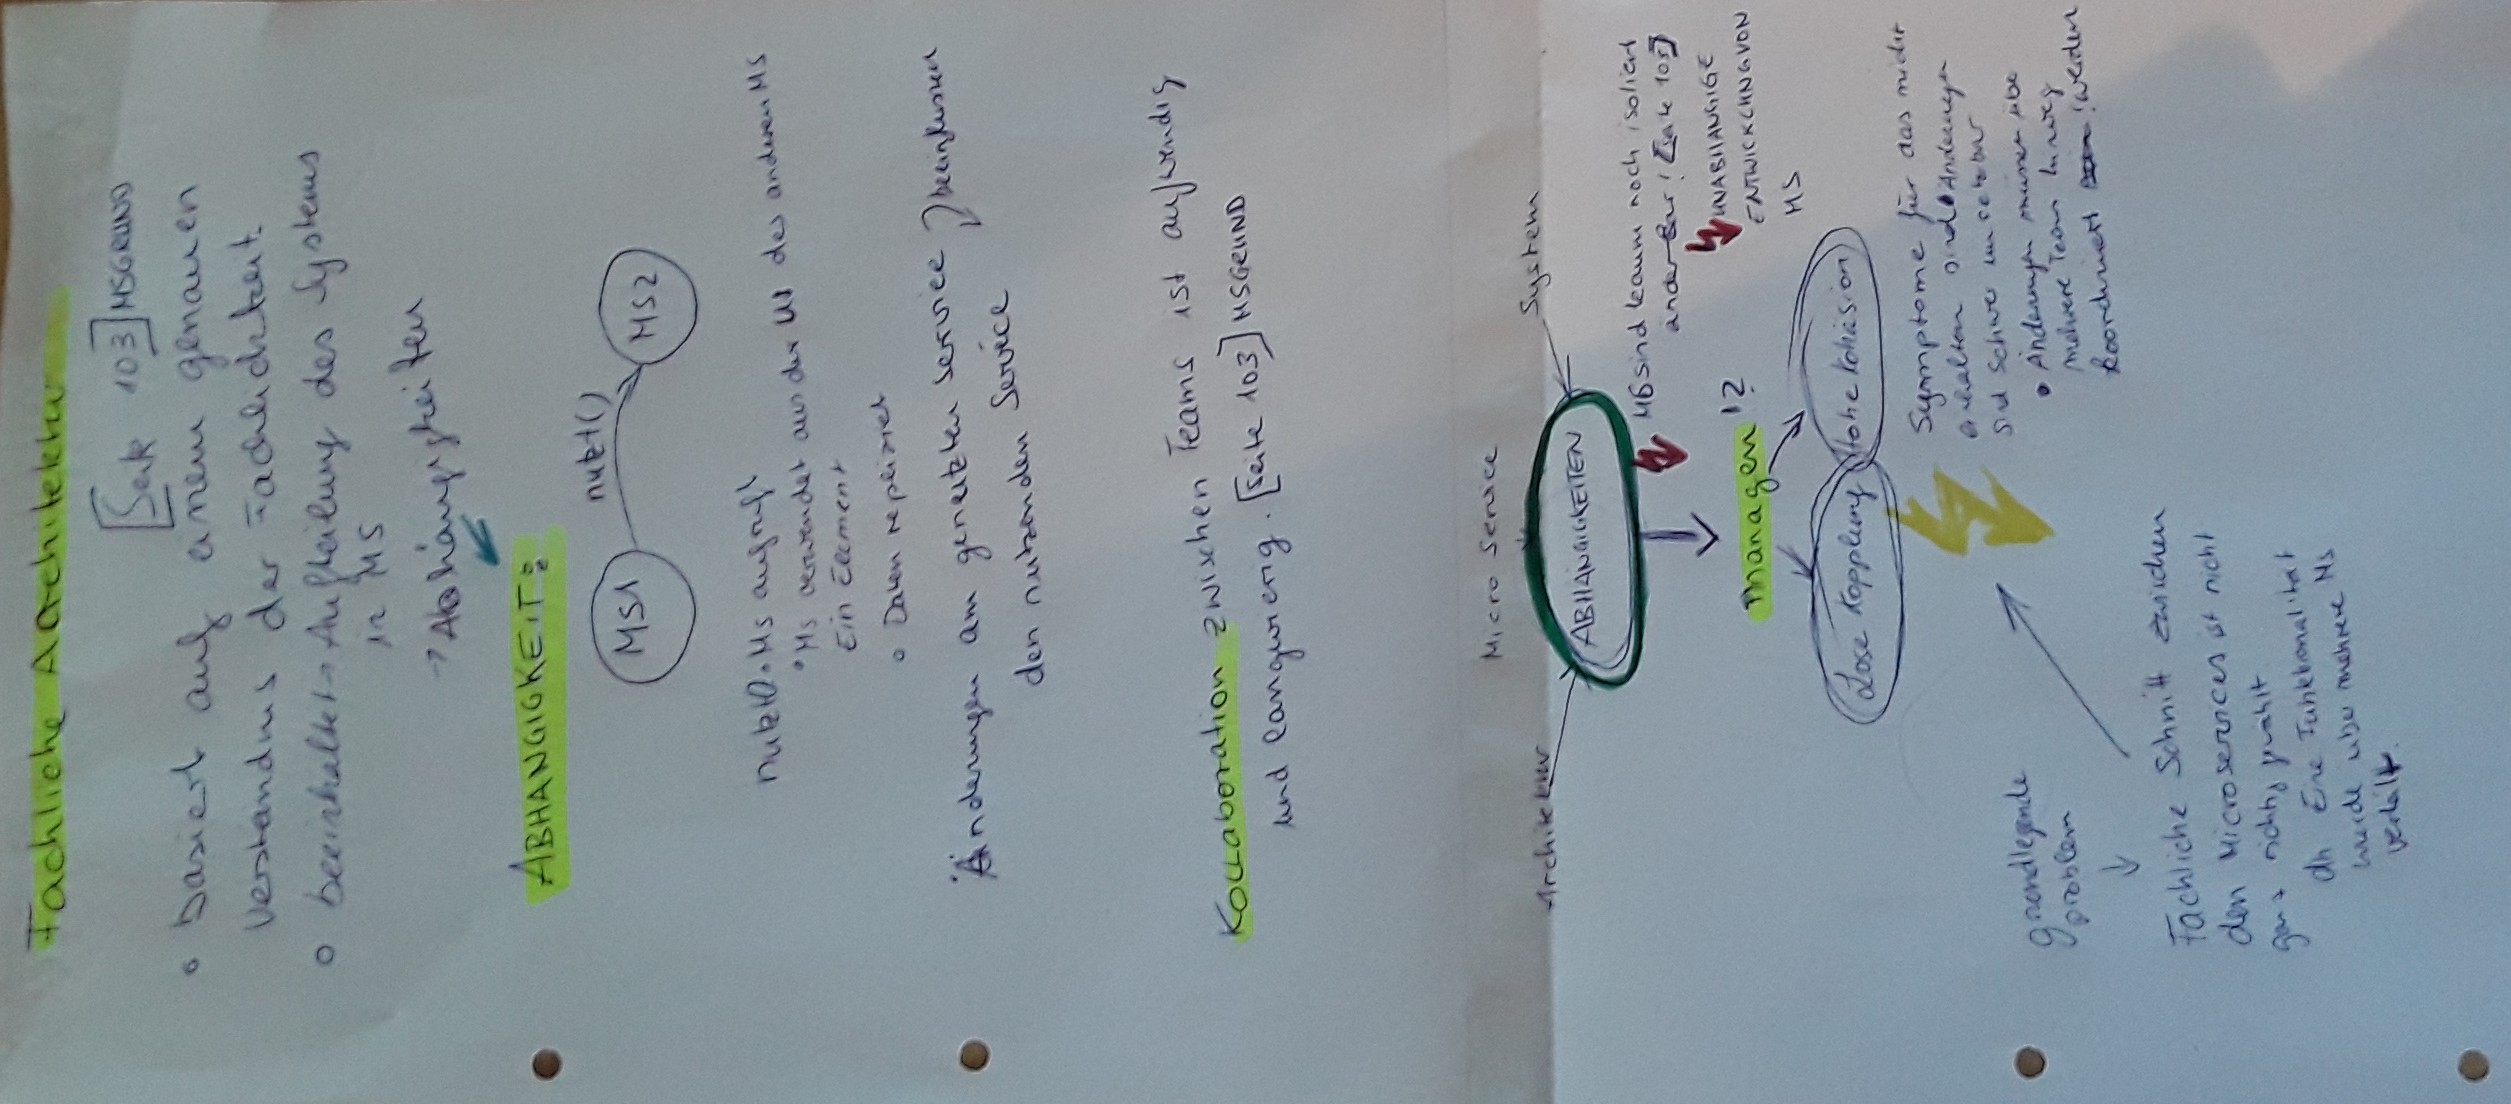 Fachliche Architektur
[Seite 103] MSGRUND
• basiert auf einem genauen
Verständnis der Fachlichkeit.
○ beeinhaltet → Aufteilung des Systems
in MS
→ Abhängigkeiten
ABHÄNGIGKEIT:
MS1
nutzt()
MS2
nutzt() • Ms aufruft
• Ms verwendet aus der UI des anderen MS
Ein Element
○ Daten repliziert
Änderungen am genutzten Service beeinflussen
den nutzenden Service
Kollaboration zwischen Teams ist aufwendig
und langwierig. [Seite 103] MSGRUND
Micro Service
Architektur
System
ABHÄNGIGKEITEN
MS sind kaum noch isoliert
änderbar! [Seite 105]
UNABHÄNGIGE
ENTWICKLUNG VON
MS
managen !?
Lose Kopplung
Hohe Kohäsion
Symptome für das nicht
erhalten sind • Änderungen
sind schwer umsetzbar
• Änderungen müssen über
mehrere Team hinweg
koordiniert ! werden
grundlegende
problem
Fachliche Schnitt zwischen
den Microservices ist nicht
ganz richtig gewählt
dh Eine Funktionalität
wurde über mehrere Ms